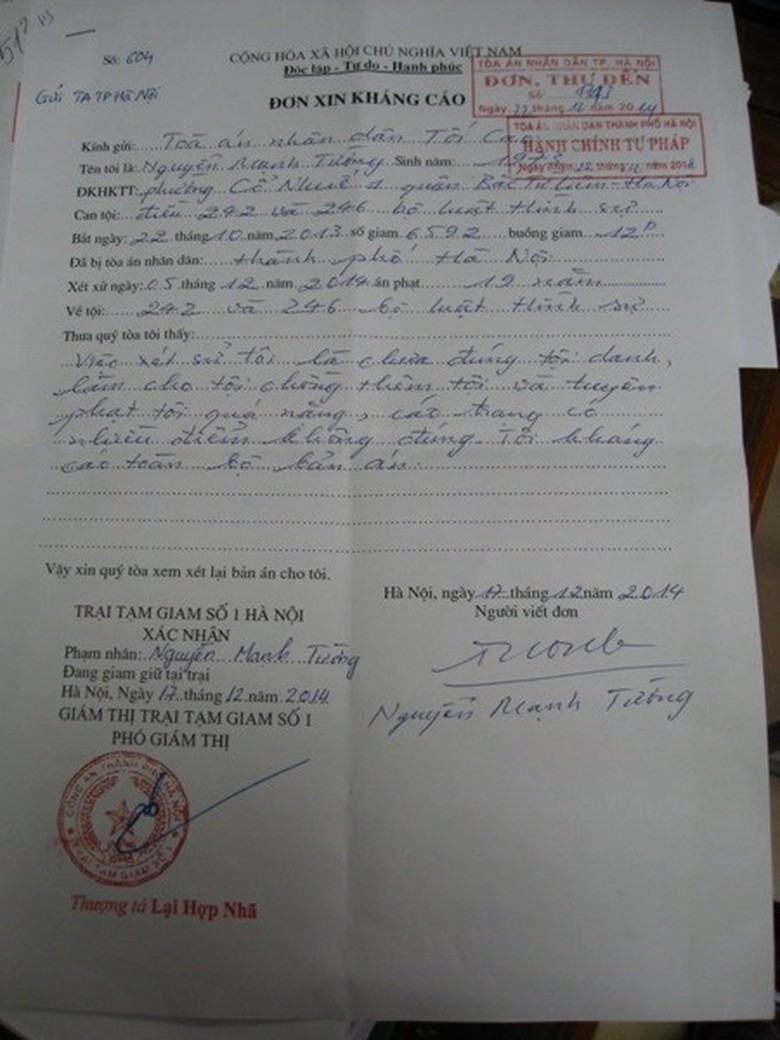 Số: 604
CỘNG HÒA XÃ HỘI CHỦ NGHĨA VIỆT NAM
Độc lập - Tự do - Hạnh phúc
Gửi TATP Hà Nội
TÒA ÁN NHÂN DÂN TP. HÀ NỘI
ĐƠN, THƯ ĐẾN
Số
Ngày 22 tháng 12 năm 2014
ĐƠN XIN KHÁNG CÁO
TÒA ÁN NHÂN DÂN THÀNH PHỐ HÀ NỘI
HÀNH CHÍNH TƯ PHÁP
Kính gửi: Toà án nhân dân Tối Cao
Tên tôi là: Nguyễn Mạnh Tường Sinh năm:
ĐKHKTT: phường Cổ Nhuế 1 quận Bắc Từ Liêm - Hà Nội
Can tội: điều 242 và 246 bộ luật hình sự
Bắt ngày: 22 tháng 10 năm 2013 số giam 6592 buồng giam 12
Đã bị tòa án nhân dân: thành phố Hà Nội
Xét xử ngày: 05 tháng 12 năm 2014 án phạt 19 năm
Về tội: 242 và 246 bộ luật hình sự
Thưa quý tòa tôi thấy:
Việc xét sử tôi là chưa đúng tội danh,
làm cho tôi chồng thêm tội và tuyên
phạt tôi quá nặng, cáo trạng có
nhiều điểm không đúng. Tôi kháng
cáo toàn bộ bản án.
Vậy xin quý tòa xem xét lại bản án cho tôi.
Hà Nội, ngày 17 tháng 12 năm 2014
Người viết đơn
Nguyễn Mạnh Tường
TRẠI TẠM GIAM SỐ 1 HÀ NỘI
XÁC NHẬN
Phạm nhân: Nguyễn Mạnh Tường
Đang giam giữ tại trại
Hà Nội, Ngày 17 tháng 12 năm 2014
GIÁM THỊ TRẠI TẠM GIAM SỐ 1
PHÓ GIÁM THỊ
CÔNG AN THÀNH PHỐ HÀ NỘI
TRẠI TẠM GIAM SỐ 1
Thượng tá Lại Hợp Nhã